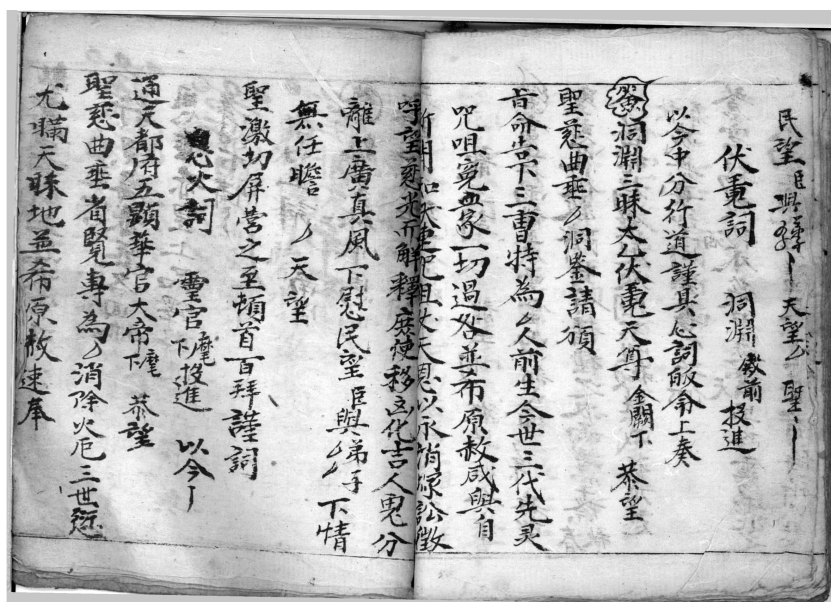 民望臣與 天望 聖
伏章詞 洞淵 前 投進
以今申分行道謹具心詞皈命上奏
洞淵三昧太乙伏魔天尊 金闕下 恭望
聖慈曲垂 洞鉴請頒
旨命告下三曹特為 人前生今世三代先灵
咒咀冤家一切過咎並希原赦咸與自
天恩以永消 訟徵
呼望慈光 解釋 移 化吉人鬼分
離上廣真風下慰民望臣與弟子 下情
無任瞻 天望
聖激切屏营之至頓首百拜謹詞
火詞 灵官 下 投進 以今
通天都府五顯華官大帝 下 恭望
聖慈曲垂省覽專為 消除火厄三世愆
尤瞞天昧地並希原赦速奉